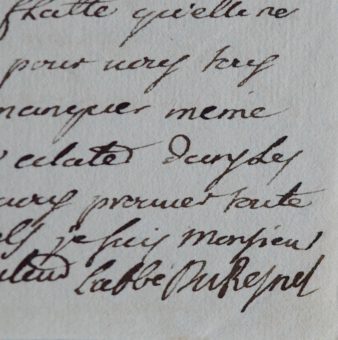 flatte qu'elle ne
pour vous tous
manquer meme
eclater dans les
vous prouver toute
je suis monsieur
L'abbé Du Resnel